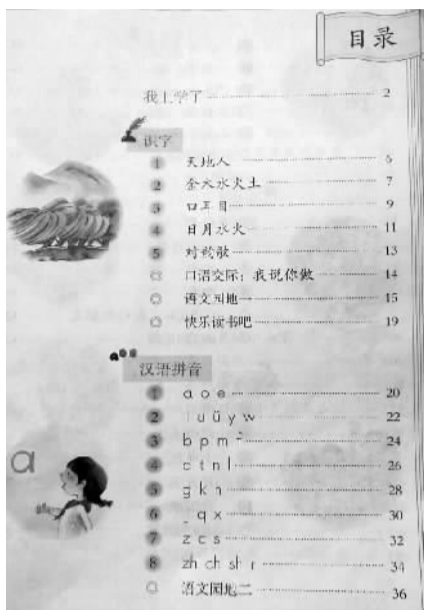 目录
我上学了 2
识字
1 天地人 6
2 金木水火土 7
3 口耳目 9
4 日月水火 11
5 对韵歌 13
◎ 口语交际：我说你做 14
◎ 语文园地一 15
◎ 快乐读书吧 19
汉语拼音
1 a o e 20
2 i u ü y w 22
3 b p m f 24
4 d t n l 26
5 g k h 28
6 j q x 30
7 z c s 32
8 zh ch sh r 34
◎ 语文园地二 36
a